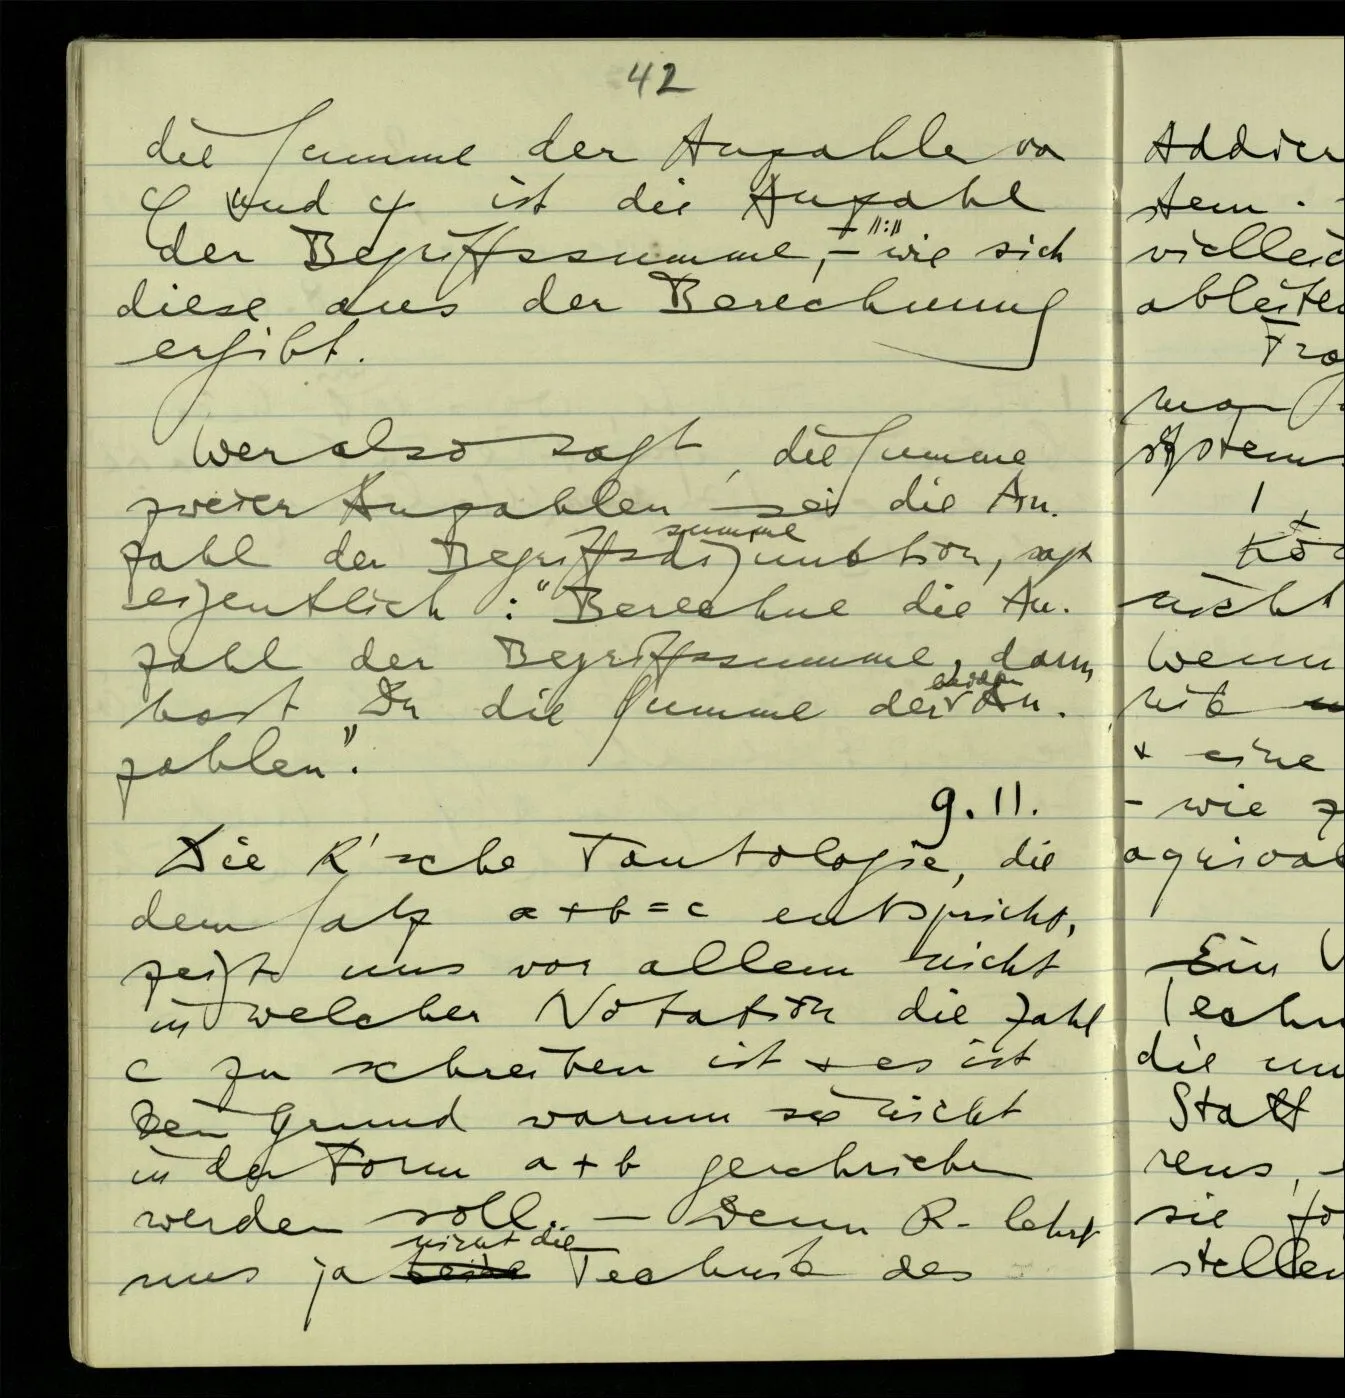 42
die Summe der Anzahlen von
φ und ψ ist die Anzahl
der Begriffssumme, – wie sich
diese aus der Berechnung
ergibt.
Wer also sagt, die Summe
zweier Anzahlen sei die An-
summe
zahl der Begriffsdisjunktion, sagt
eigentlich: "Berechne die An-
zahl der Begriffssumme, dann
beiden
hast Du die Summe der An-
zahlen".
9.11.
Die R'sche Tautologie, die
dem Satz a+b=c entspricht,
zeigt uns vor allem nicht
in welcher Notation die Zahl
c zu schreiben ist + es ist
kein Grund warum sie nicht
in der Form a+b geschrieben
werden soll. – Denn R. lehrt
nicht die
uns ja keine Technik des
Addier
stem.
vielleic
ableiten
Fra
man
system
Kö
nicht
Wenn
mit
+ eine
– wie z
äquival
Ein V
Techn
die un
Statt
rens,
sie fo
stellen